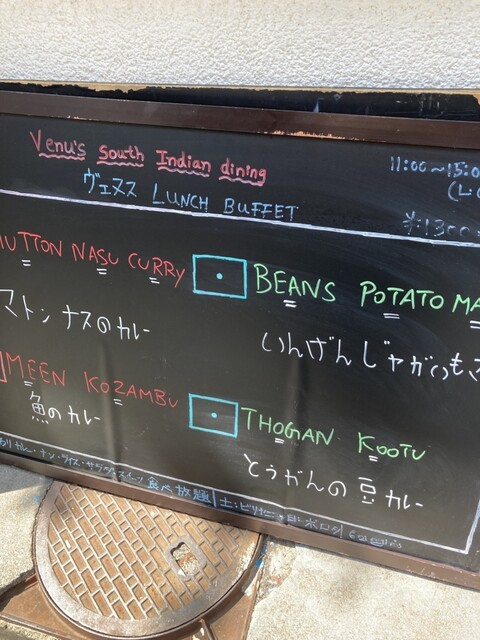 Venu's South Indian dining
11:00~15:0
ヴェヌス LUNCH BUFFET
¥1300
MUTTON NASU CURRY
BEANS POTATO MA
マトンナスのカレー
いんげんじゃがいも
MEEN KOZAMBU
THOGAN KOOTU
魚のカレー
とうがんの豆カレー
カレー・ナン・ライス・サラダ・スイーツ 食べ放題